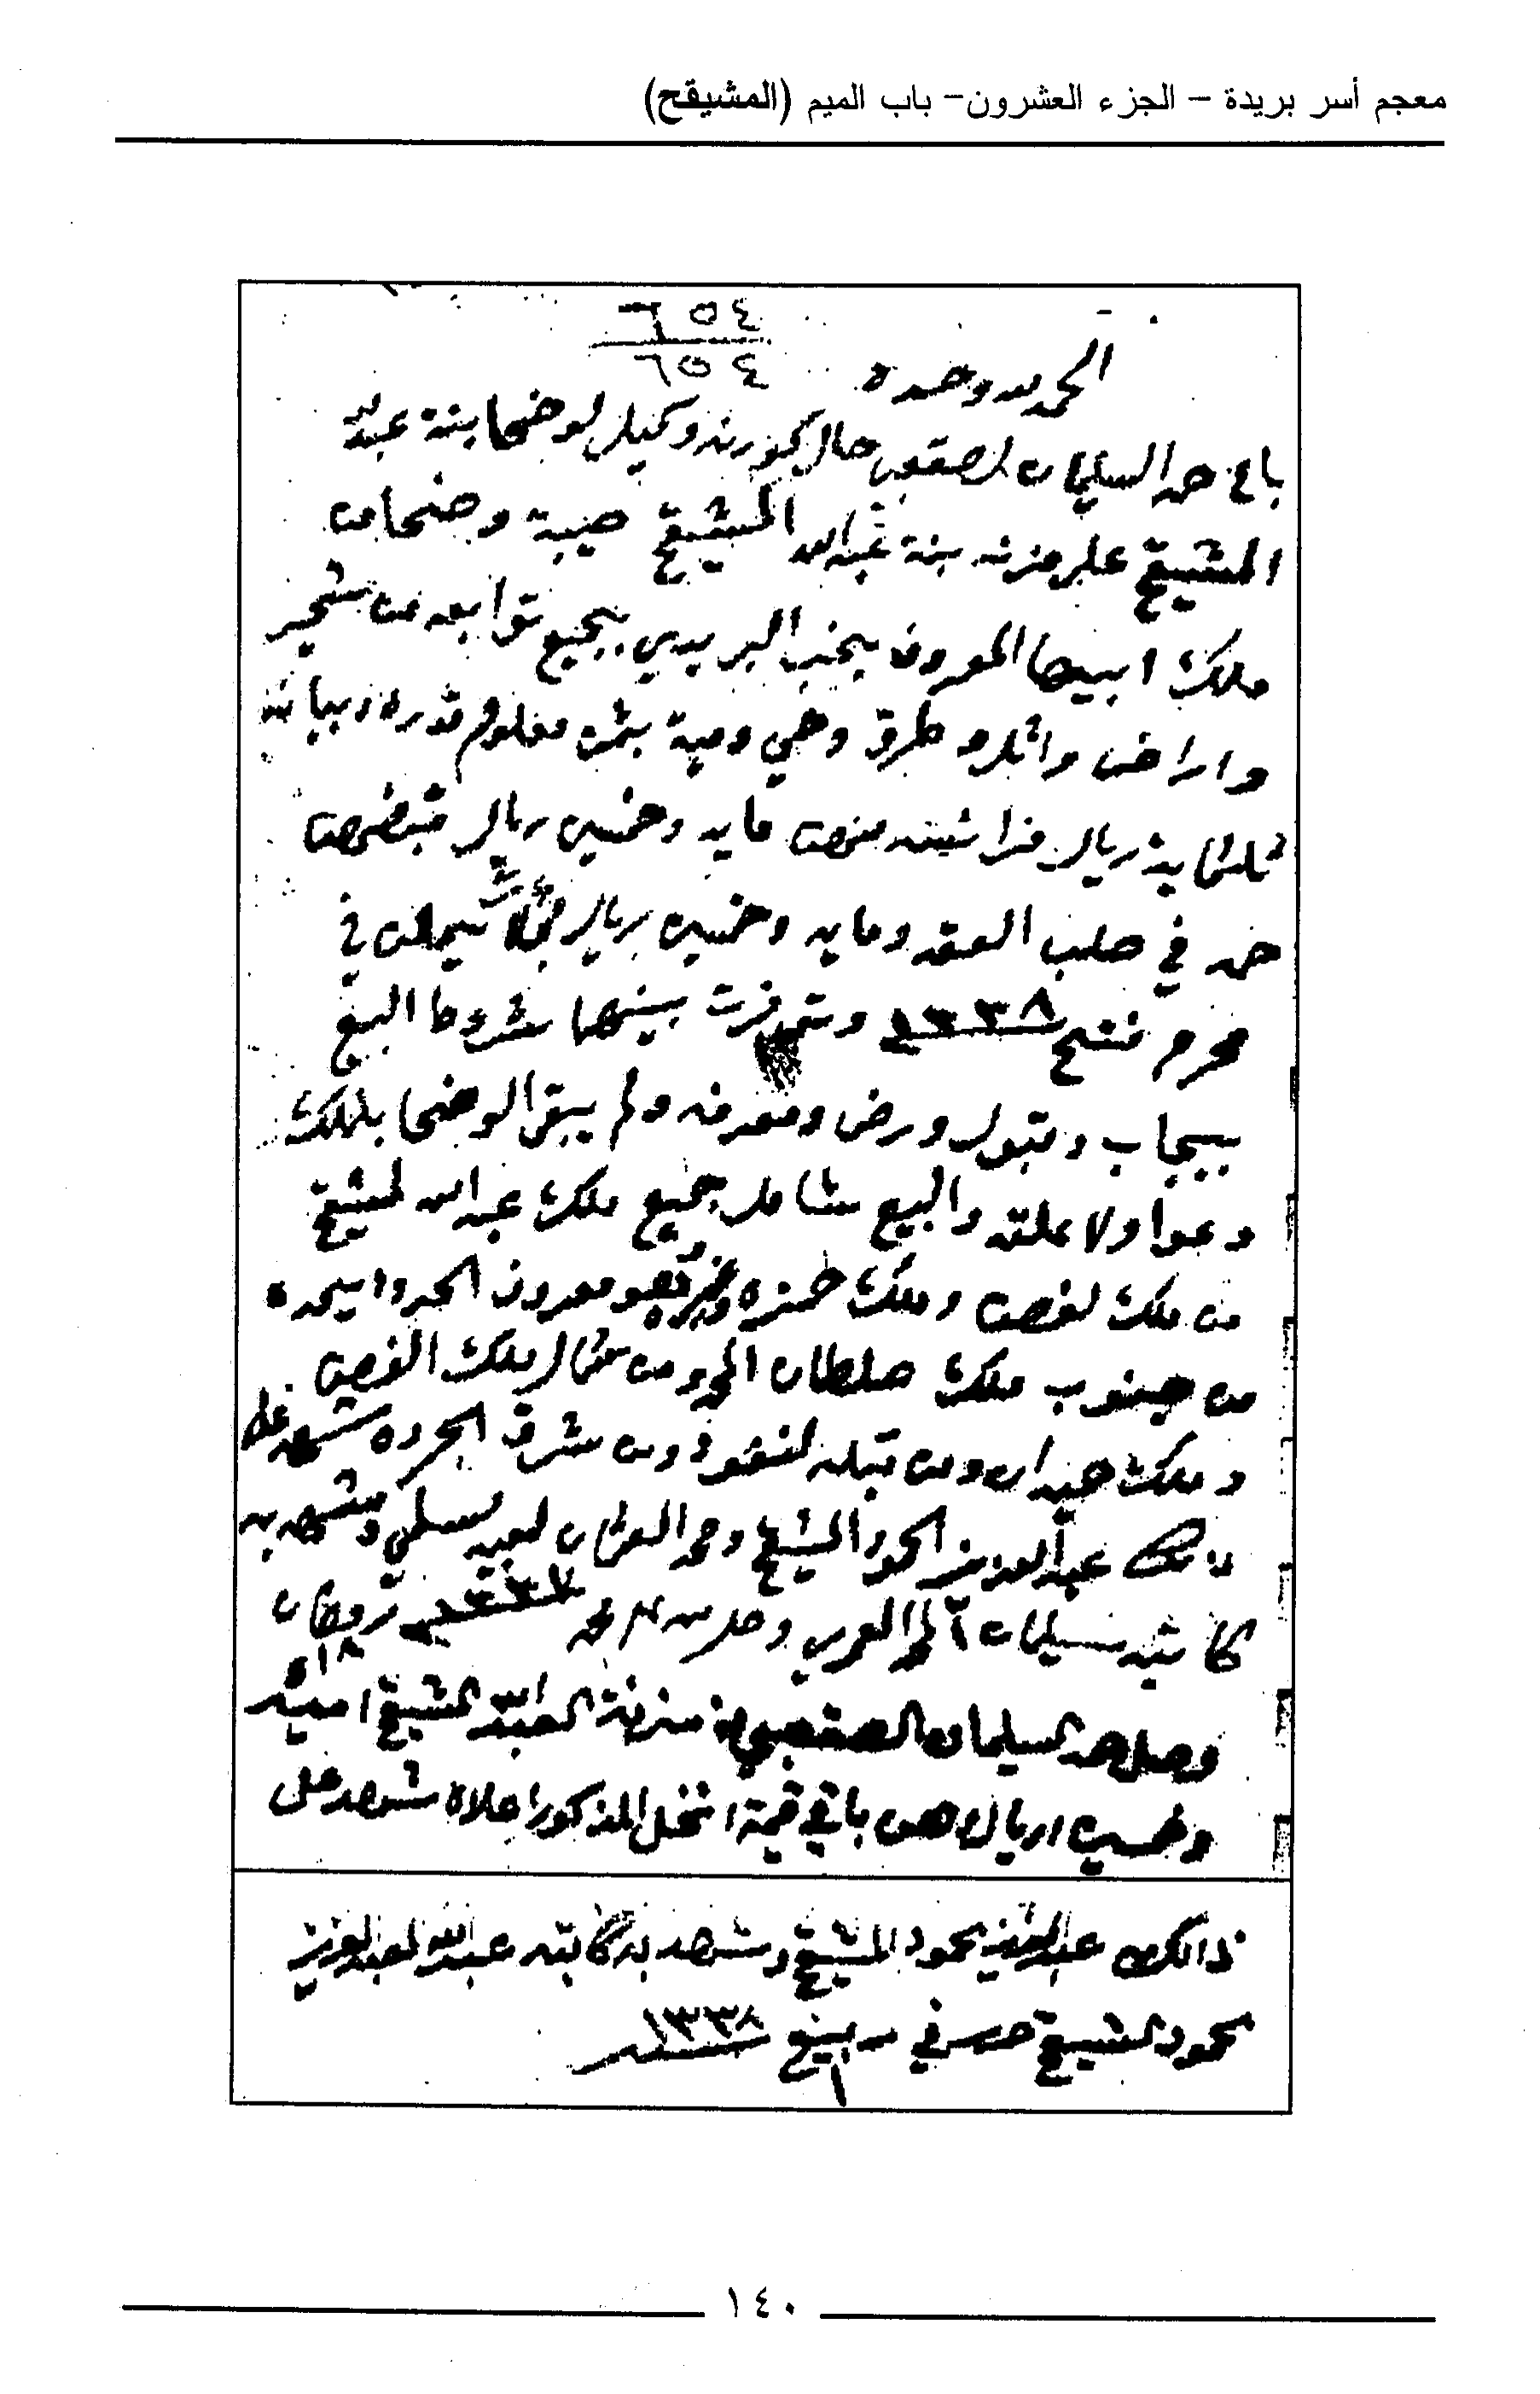 معجم أسر بريدة – الجزء العشرون– باب الميم (المشيقح)
٦٥٤
٦٥٤
الحمد لله وحده
باع حمد السليمان لصقعبي حال كونه وكيل لوضحا بنة عبدالله
المشيقح على مزنه بنة عبدالله المشيقح صيبة وضحا من
ملك ابيها المعروف بخب البريدي بجميع توابعه من شجر
واراض واثل وطرق وحي وميت بثمن معلوم قدره وبيانه
ثلثماية ريال فرانسه منهن مايه وخمسين ريال قبضهن
حمد في صلب العقد ومايه وخمسين ريال يحلن في
محرم فتح ١٣٣٨ وتوفرت بينهما شروط البيع
بيجاب وقبول ورض ومعرفه ولم يبق لوضحا بلملك
دعوا ولا علقه والبيع شامل جميع ملك عبدالله لمشيقح
من ملك لغصن وملك حمزه وغيره وهو معروف الحد وايحده
من جنوب ملك صلطان ومن شمال ملك الغصن
وملك حيدان ومن قبله لنفود ومن شرق الجرده شهد على
ذلك عبدالعزيز الحمود المشيقح وحمد العثمان لعبد لمسلمي وشهد به
كاتبه سليمان العمري وصلى الله على محمد ١٣٣٧ رمضان
١٨
وصل حمد لسليمان الصقعبي من مزنة العبدالله لمشيقح امية
وخمسين اريال هن باقي قيمة انخل المذكور اعلاه شهد على
ذالك عبدالعزيز لحمود المشيقح وشهد به كاتبه عبدالله لعبدالعزيز
لحمود لمشيقح حرر في ربيع ١ ١٣٣٨
١٤٠